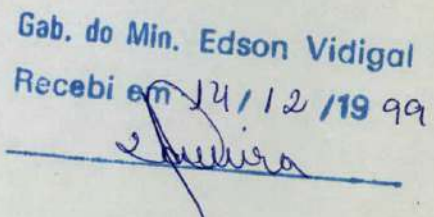 Gab. do Min. Edson Vidigal
Recebi em 14/12/1999